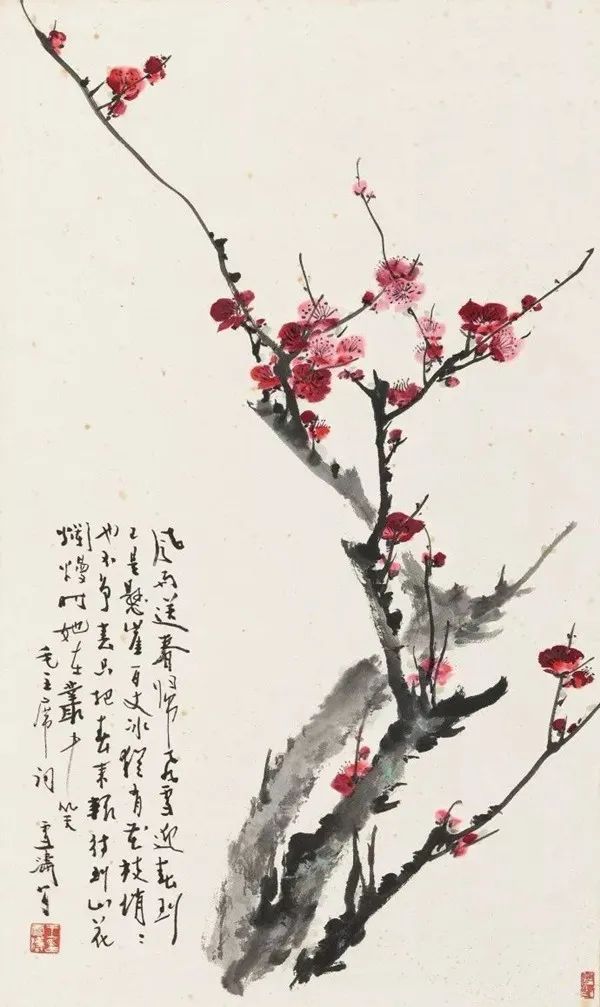 風雨送春归飛雪迎春到
已是懸崖百丈冰猶有花枝俏〻
也不争春只把春来報待到山花
爛熳时她在叢中笑
毛主席词 雪涛写